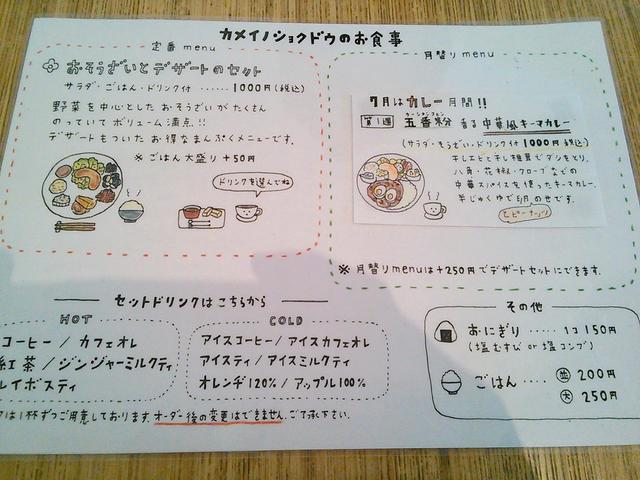 カメイノショクドウのお食事
定番 menu
おそうざいとデザートのセット
サラダ・ごはん・ドリンク付 ‥‥ 1000円(税込)
野菜を中心としたおそうざいがたくさん
のっていてボリューム満点!!
デザートもついたお得なまんぷくメニューです。
※ごはん大盛り +50円
ドリンクを選んでね
月替り menu
7月はカレー月間!!
第1週 五香粉香る中華風キーマカレー
(サラダ・そうざい・ドリンク付 1000円税込)
干しエビと干し椎茸でダシをとり、
八角・花椒・クローブなどの
中華スパイスを使ったキーマカレー。
半じゅくゆで卵のせです。
ピーナッツ
※月替りmenuは+250円でデザートセットにできます。
セットドリンクはこちらから
HOT
コーヒー / カフェオレ
紅茶 / ジンジャーミルクティ
レイボスティ
COLD
アイスコーヒー / アイスカフェオレ
アイスティ / アイスミルクティ
オレンヂ120% / アップル100%
は1杯ずつご用意しております。オーダー後の変更はできません。ご了承下さい。
その他
おにぎり ‥‥‥ 1コ 150円
(塩むすび or 塩コンブ)
ごはん ‥‥ 並 200円
大 250円